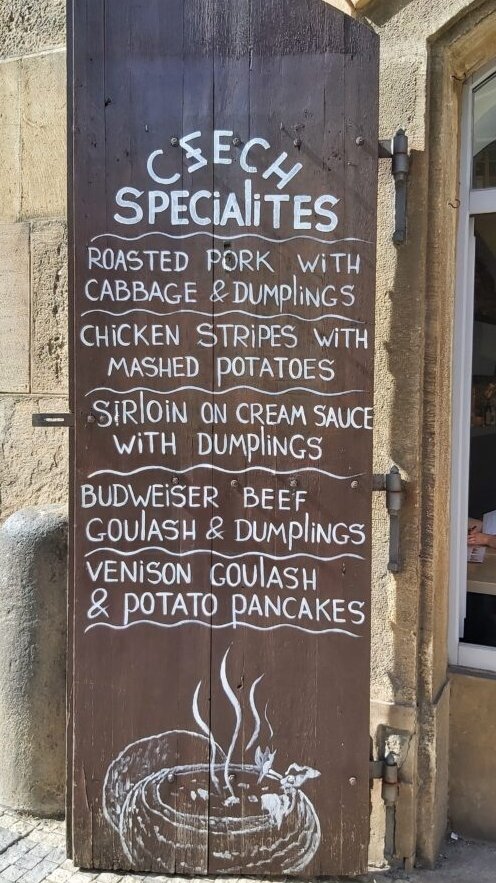 CZECH
SPECIALITES
ROASTED PORK WITH
CABBAGE & DUMPLINGS
CHICKEN STRIPES WITH
MASHED POTATOES
SIRLOIN ON CREAM SAUCE
WITH DUMPLINGS
BUDWEISER BEEF
GOULASH & DUMPLINGS
VENISON GOULASH
& POTATO PANCAKES